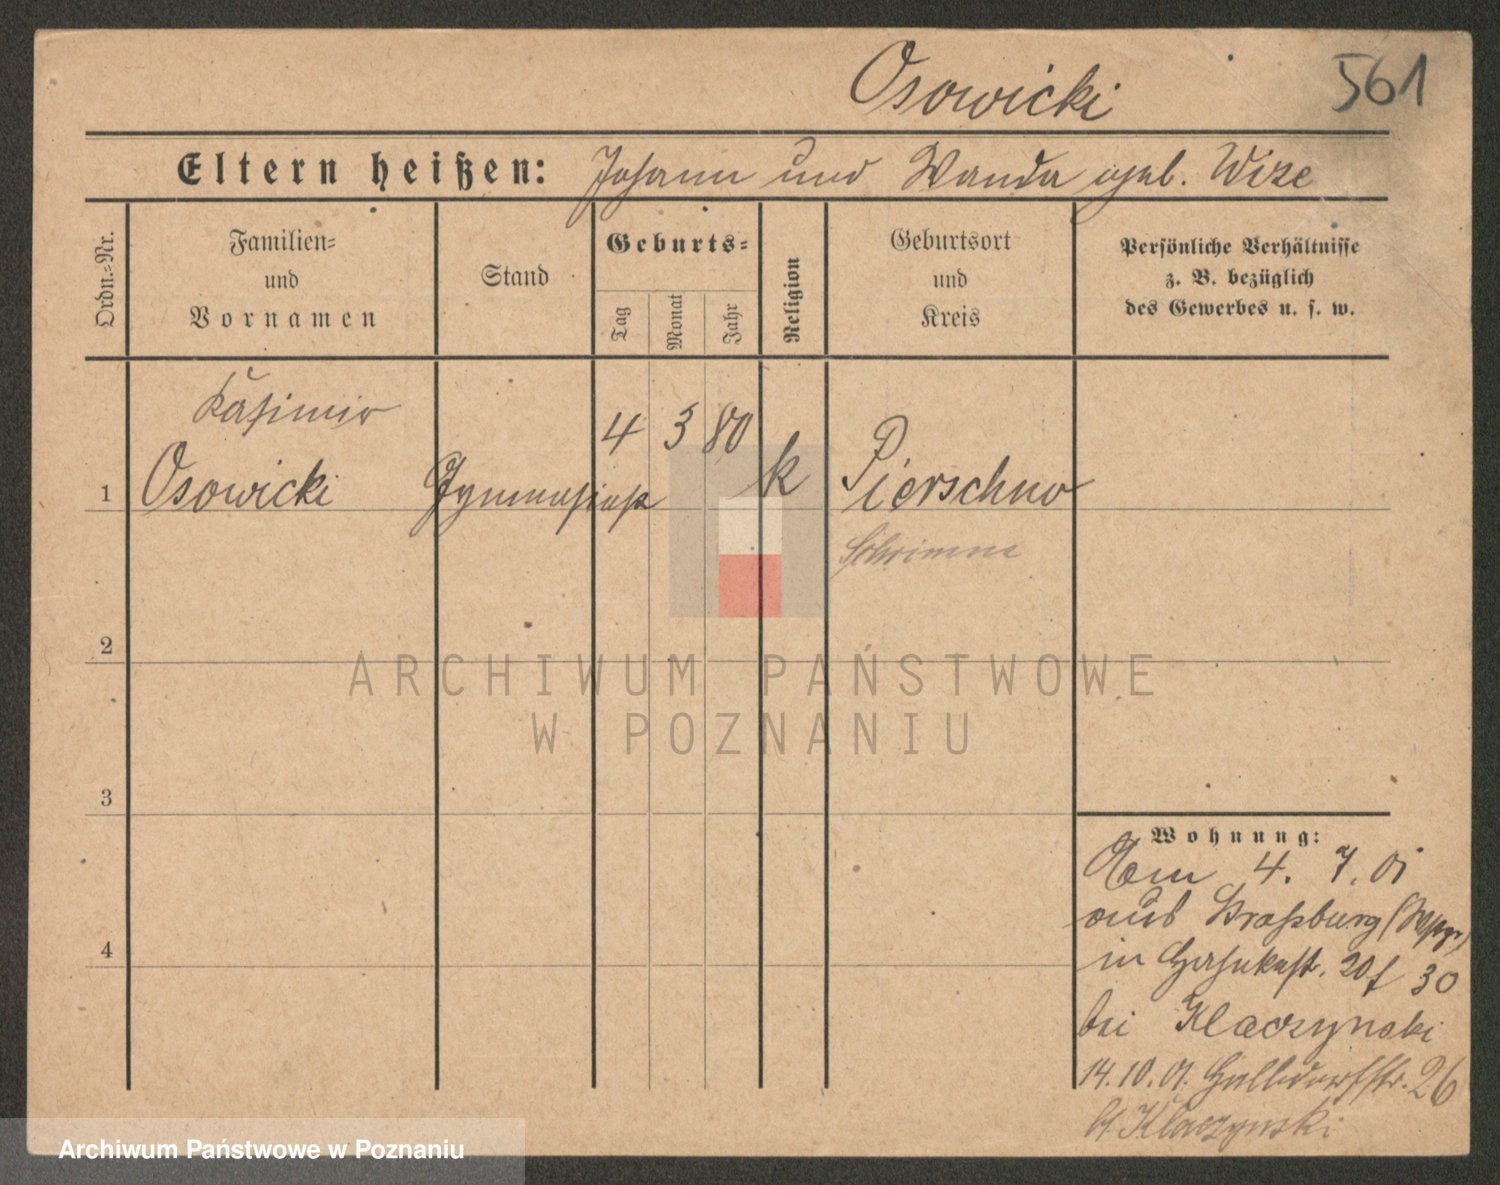 Osowicki
561
Eltern heißen: Johann und Wanda geb. Wize
Ordn.-Nr.
Familien-
und
Vornamen
Stand
Geburts-
Tag
Monat
Jahr
Religion
Geburtsort
und
Kreis
Persönliche Verhältnisse
z. B. bezüglich
des Gewerbes u. s. w.
Kasimir
4 3 80
1 Osowicki Gymnasiast k Pierschno
Schrimm
2
ARCHIWUM PAŃSTWOWE
W POZNANIU
3
Wohnung:
Am 4. 7. 01
aus Strasburg (Wpr)
4
in 30
bei Klaczynski
14.10.01. 26
b/ Klaczynski
Archiwum Państwowe w Poznaniu